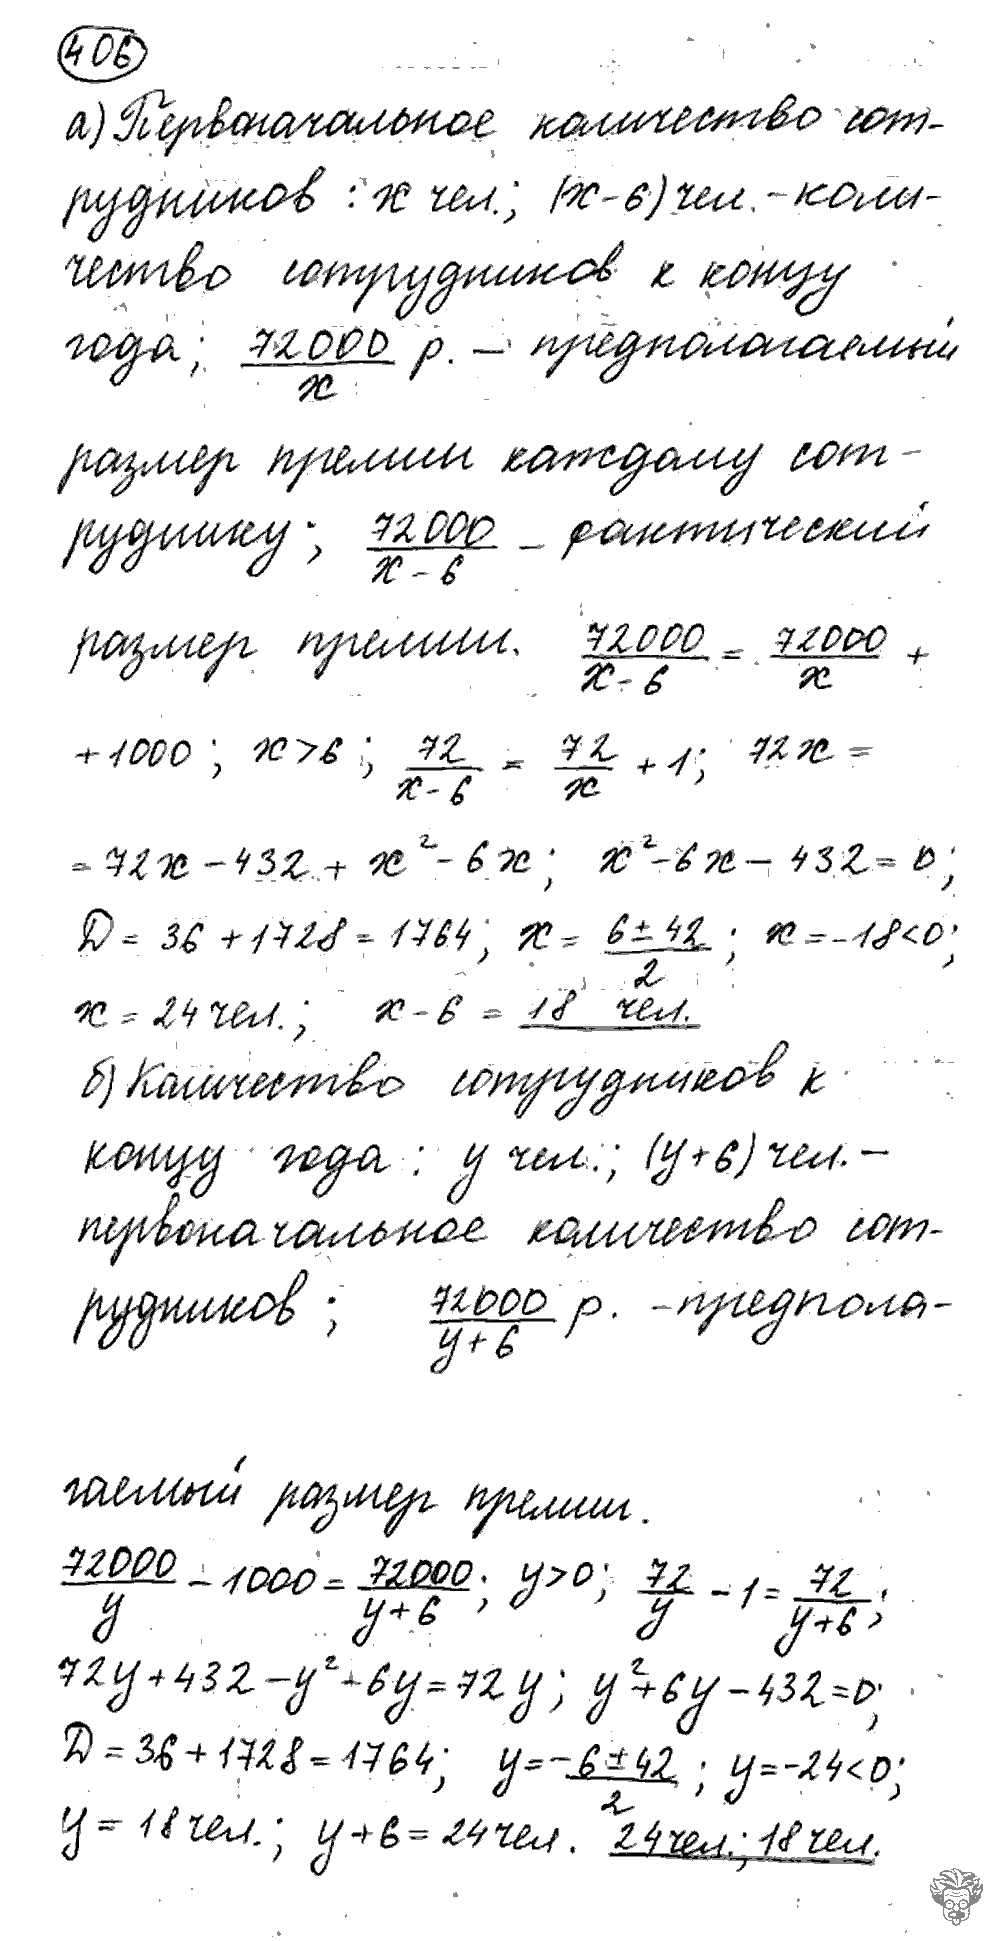 406
а) Первоначальное количество сот-
рудников : x чел.; (x-6) чел. - коли-
чество сотрудников к концу
года; 72000/x р. — предполагаемый
размер премии каждому сот-
руднику; 72000/(x-6) - фактический
размер премии. 72000/(x-6) = 72000/x +
+ 1000; x>6; 72/(x-6) = 72/x + 1; 72x =
= 72x - 432 + x² - 6x; x² - 6x - 432 = 0;
D = 36 + 1728 = 1764; x = (6 ± 42)/2; x = -18 < 0;
x = 24 чел.; x - 6 = 18 чел.
б) Количество сотрудников к
концу года : y чел.; (y+6) чел. —
первоначальное количество сот-
рудников; 72000/(y+6) р. - предпола-
гаемый размер премии.
72000/y - 1000 = 72000/(y+6); y>0; 72/y - 1 = 72/(y+6);
72y + 432 - y² + 6y = 72y; y² + 6y - 432 = 0;
D = 36 + 1728 = 1764; y = -6 ± 42/2; y = -24 < 0;
y = 18 чел.; y + 6 = 24 чел. 24 чел.; 18 чел.